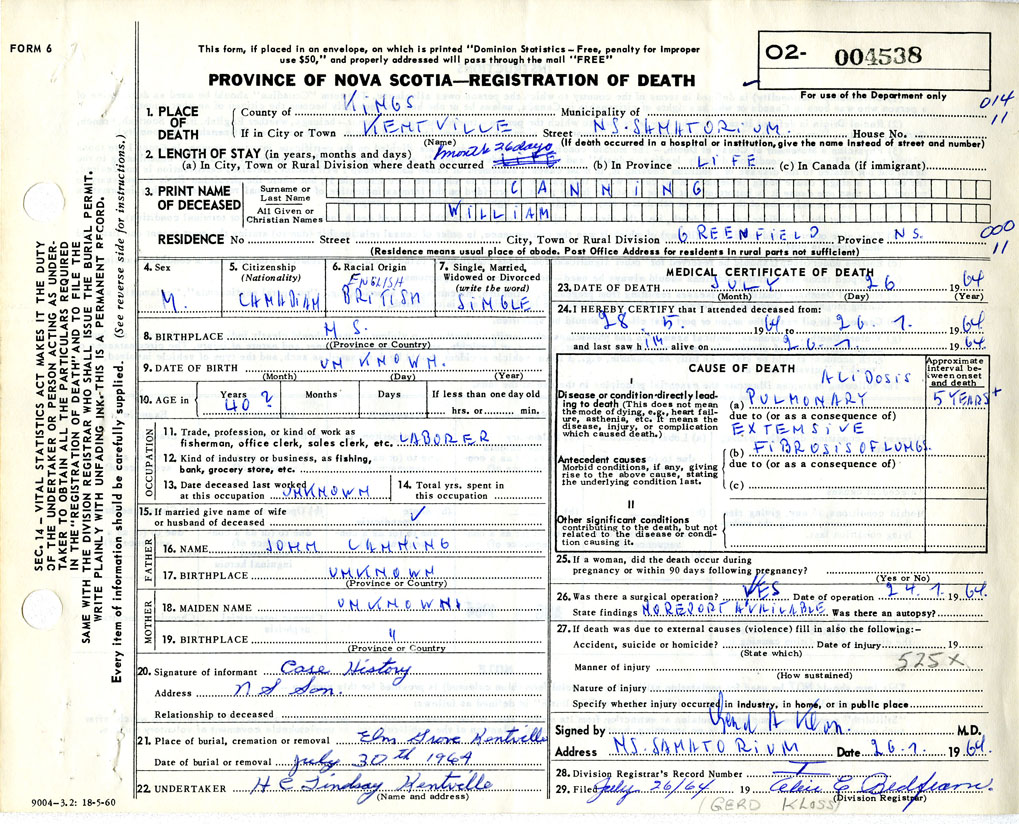 FORM 6
This form, if placed in an envelope, on which is printed "Dominion Statistics – Free, penalty for improper
use $50," and properly addressed will pass through the mail "FREE"
O2- 004538
PROVINCE OF NOVA SCOTIA—REGISTRATION OF DEATH
For use of the Department only
014
11
SEC. 14 – VITAL STATISTICS ACT MAKES IT THE DUTY
OF THE UNDERTAKER OR PERSON ACTING AS UNDER-
TAKER TO OBTAIN ALL THE PARTICULARS REQUIRED
IN THE "REGISTRATION OF DEATH" AND TO FILE THE
SAME WITH THE DIVISION REGISTRAR WHO SHALL ISSUE THE BURIAL PERMIT.
WRITE PLAINLY WITH UNFADING INK—THIS IS A PERMANENT RECORD.
Every item of information should be carefully supplied. (See reverse side for instructions.)
1. PLACE OF DEATH
County of KINGS Municipality of
If in City or Town KENTVILLE Street NS. SANATORIUM. House No.
(Name) (If death occurred in a hospital or institution, give the name instead of street and number)
2. LENGTH OF STAY (in years, months and days) 1 month 26 days
(a) In City, Town or Rural Division where death occurred LIFE (b) In Province LIFE (c) In Canada (if immigrant)
3. PRINT NAME OF DECEASED
Surname or Last Name CANNING
All Given or Christian Names WILLIAM
RESIDENCE No Street City, Town or Rural Division GREENFIELD Province NS.
000
11
(Residence means usual place of abode. Post Office Address for residents in rural parts not sufficient)
4. Sex M.
5. Citizenship (Nationality) CANADIAN
6. Racial Origin ENGLISH BRITISH
7. Single, Married, Widowed or Divorced (write the word) SINGLE
8. BIRTHPLACE N S.
(Province or County)
9. DATE OF BIRTH UNKNOWN.
(Month) (Day) (Year)
10. AGE in Years 40? Months Days If less than one day old
hrs. or min.
OCCUPATION
11. Trade, profession, or kind of work as
fisherman, office clerk, sales clerk, etc. LABORER
12. Kind of industry or business, as fishing,
bank, grocery store, etc.
13. Date deceased last worked
at this occupation UNKNOWN
14. Total yrs. spent in
this occupation
15. If married give name of wife
or husband of deceased ✓
FATHER
16. NAME JOHN CANNING
17. BIRTHPLACE UNKNOWN
(Province or Country)
MOTHER
18. MAIDEN NAME UNKNOWN
19. BIRTHPLACE "
(Province or Country
20. Signature of informant Case History
Address N S San.
Relationship to deceased
21. Place of burial, cremation or removal Elm Grove Kentville
Date of burial or removal July 30th 1964
22. UNDERTAKER H C Lindsay Kentville
(Name and address)
9004-3.2: 18-5-60
MEDICAL CERTIFICATE OF DEATH
23. DATE OF DEATH JULY 26 1964
(Month) (Day) (Year)
24. I HEREBY CERTIFY that I attended deceased from:
28. 5. 1964 to 26. 7. 1964
and last saw him alive on 26. 7. 1964
CAUSE OF DEATH
Approximate interval between onset and death
I
Disease or condition directly lead-
ing to death (This does not mean
the mode of dying, e.g., heart fail-
ure, asthenia, etc. It means the
disease, injury, or complication
which caused death.)
ACIDOSIS
(a) PULMONARY 5 YEARS +
due to (or as a consequence of)
EXTENSIVE
(b) FIBROSIS OF LUNGS.
due to (or as a consequence of)
(c)
Antecedent causes
Morbid conditions, if any, giving
rise to the above cause, stating
the underlying condition last.
II
Other significant conditions
contributing to the death, but not
related to the disease or condi-
tion causing it.
25. If a woman, did the death occur during
pregnancy or within 90 days following pregnancy?
(Yes or No)
26. Was there a surgical operation? YES Date of operation 24. 7. 1964.
State findings NO REPORT AVAILABLE Was there an autopsy?
27. If death was due to external causes (violence) fill in also the following:–
Accident, suicide or homicide? Date of injury 19
(State which)
525X
Manner of injury
(How sustained)
Nature of injury
Specify whether injury occurred in industry, in home, or in public place
Signed by Gerd A Kloss M.D.
Address NS. SANATORIUM Date 26. 7. 1964.
28. Division Registrar's Record Number
29. Filed July 26/64 19
(Division Registrar)
(GERD KLOSS)